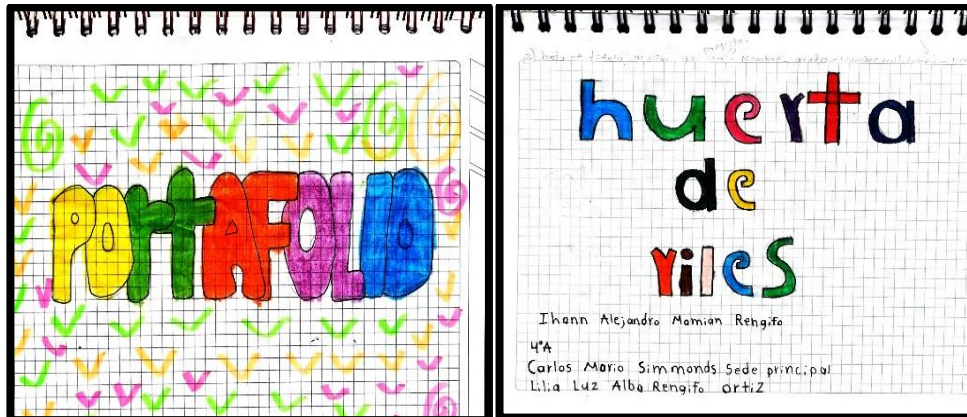 PORTAFOLIO
huerta
de
riles
Ihann Alejandro Mamian Rengifo
4°A
Carlos Mario Simmonds Sede principal
Lilia Luz Alba Rengifo ortiz